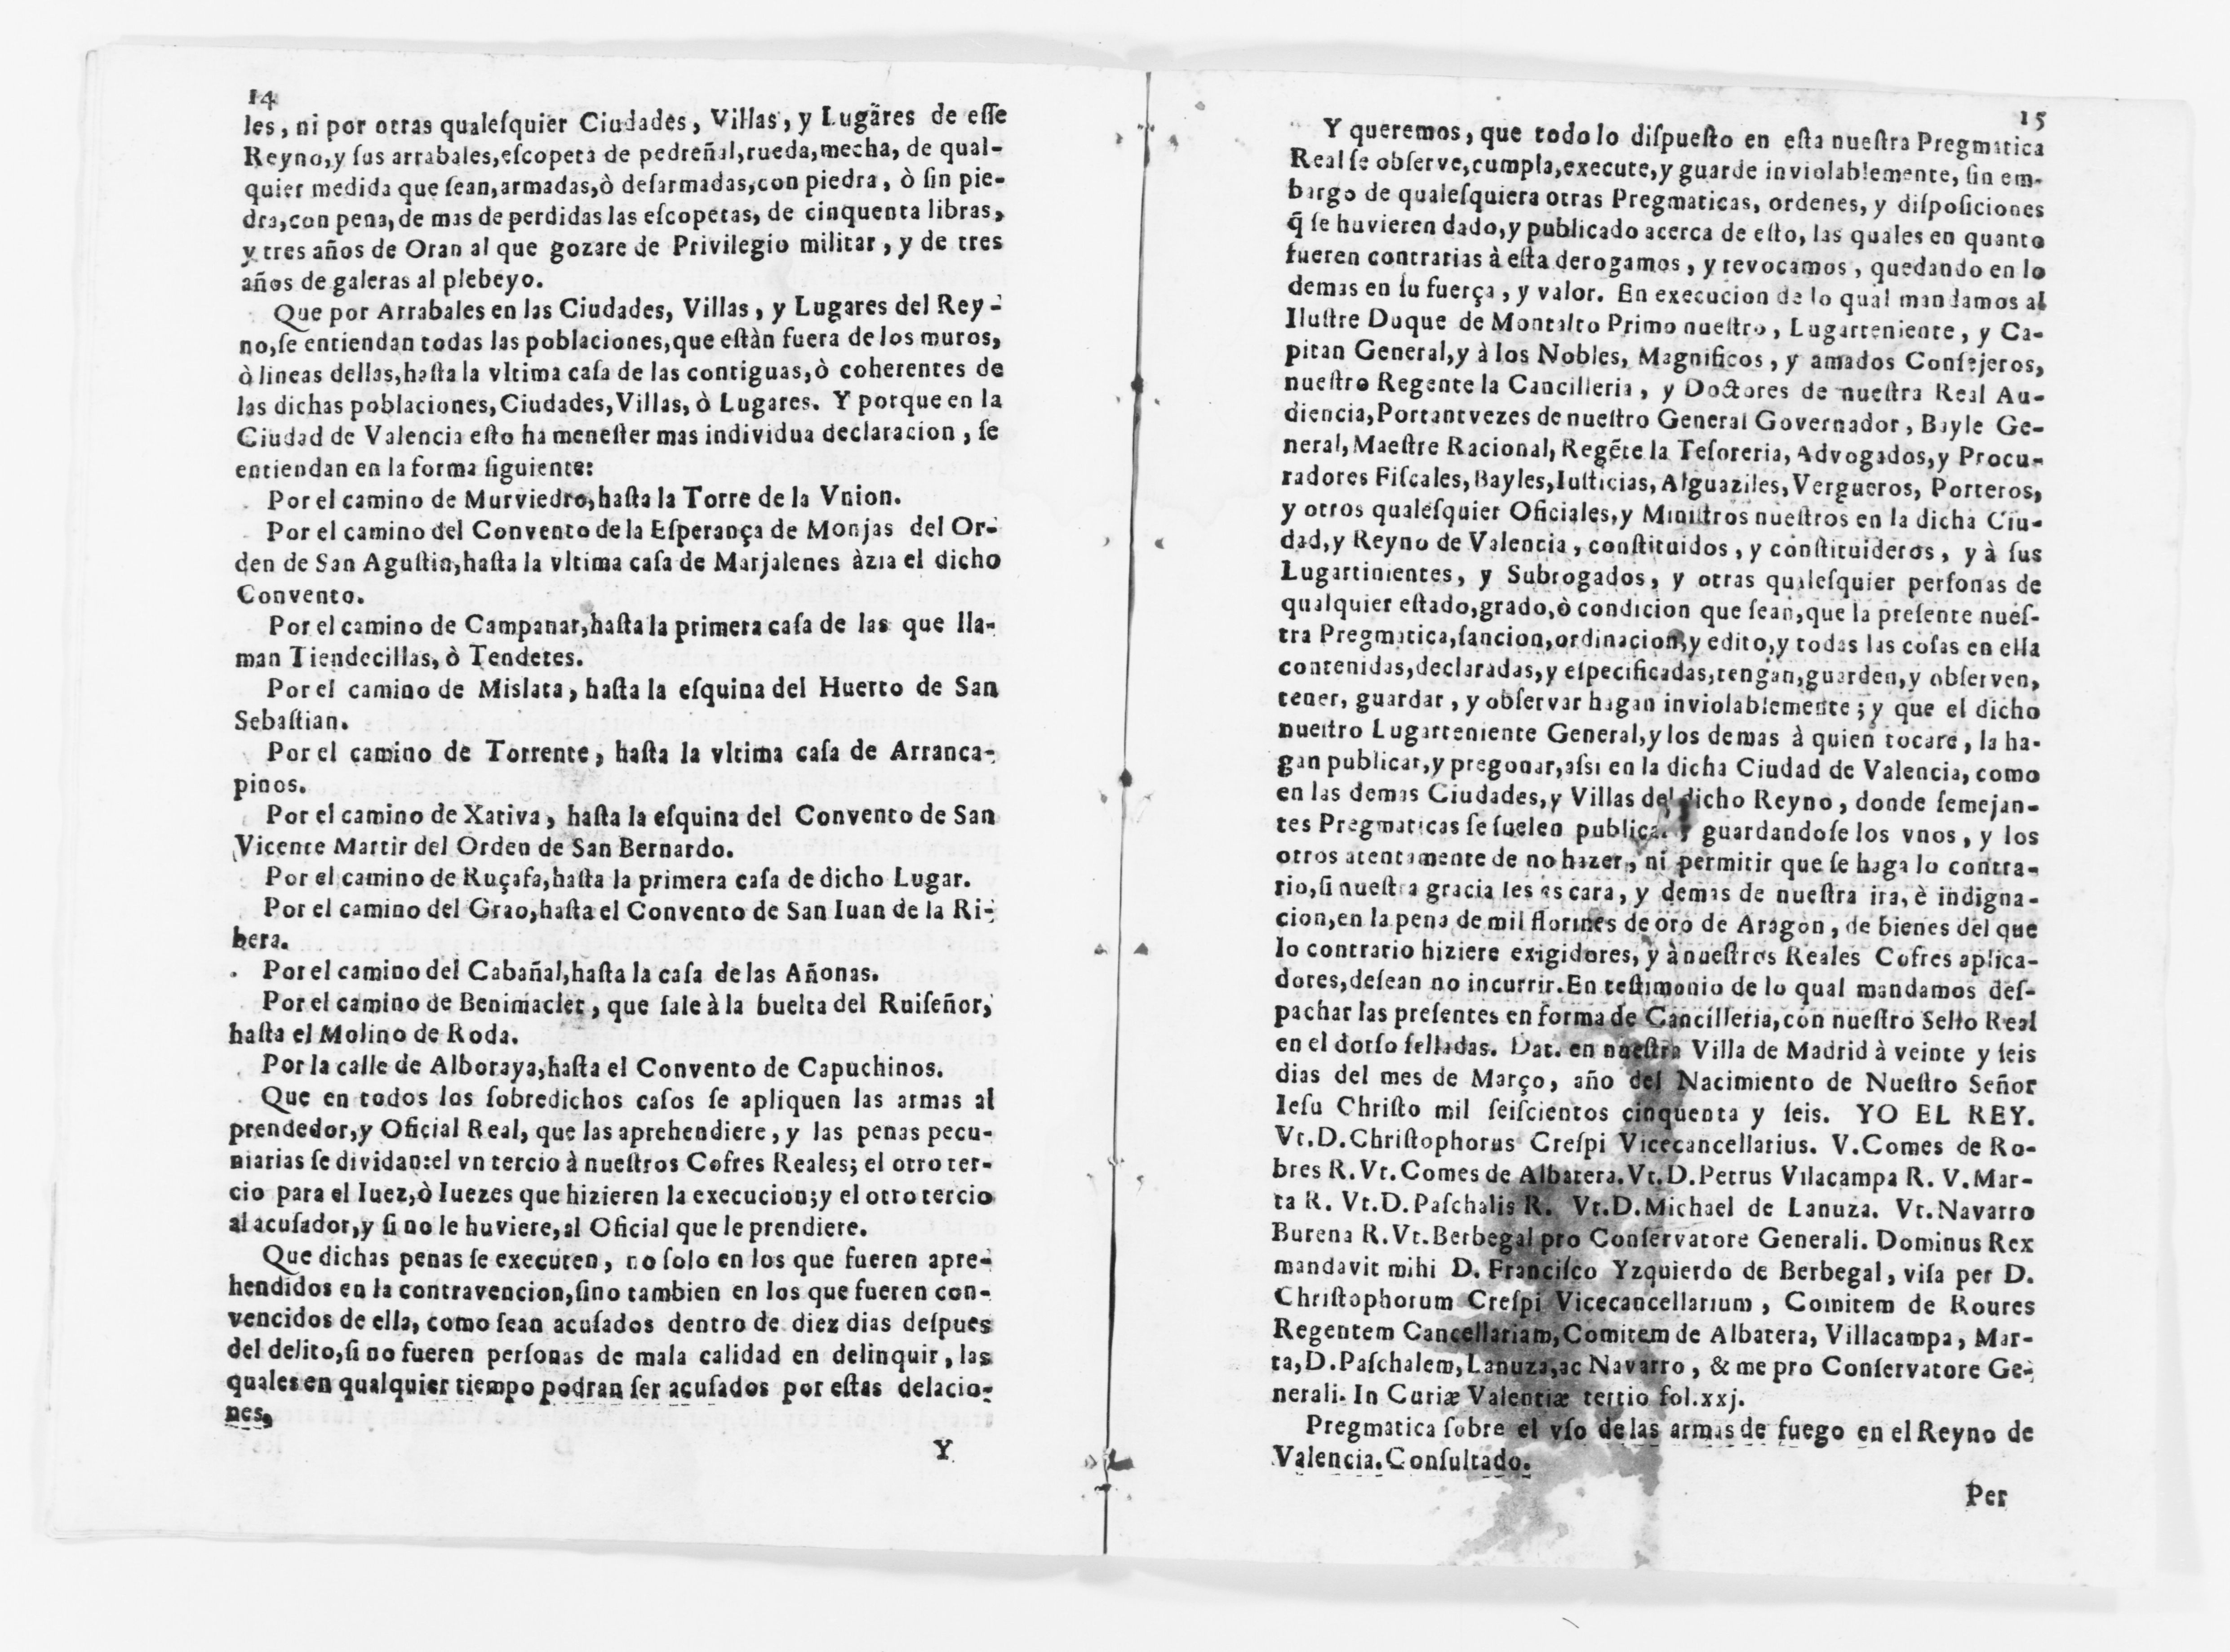 14
les, ni por otras qualeſquier Ciudades, Villas, y Lugares de eſſe
Reyno, y ſus arrabales, eſcopeta de pedreñal, rueda, mecha, de qual-
quier medida que ſean, armadas, ò deſarmadas, con piedra, ò ſin pie-
dra, con pena, de mas de perdidas las eſcopetas, de cinquenta libras,
y tres años de Oran al que gozare de Privilegio militar, y de tres
años de galeras al plebeyo.
Que por Arrabales en las Ciudades, Villas, y Lugares del Rey-
no, ſe entiendan todas las poblaciones, que eſtàn fuera de los muros,
ò lineas dellas, haſta la vltima caſa de las contiguas, ò coherentes de
las dichas poblaciones, Ciudades, Villas, ò Lugares. Y porque en la
Ciudad de Valencia eſto ha meneſter mas individua declaracion, ſe
entiendan en la forma ſiguiente:
Por el camino de Murviedro, haſta la Torre de la Vnion.
Por el camino del Convento de la Eſperança de Monjas del Or-
den de San Aguſtin, haſta la vltima caſa de Marjalenes àzia el dicho
Convento.
Por el camino de Campanar, haſta la primera caſa de las que lla-
man Tiendecillas, ò Tendetes.
Por el camino de Mislata, haſta la eſquina del Huerto de San
Sebaſtian.
Por el camino de Torrente, haſta la vltima caſa de Arranca-
pinos.
Por el camino de Xativa, haſta la eſquina del Convento de San
Vicente Martir del Orden de San Bernardo.
Por el camino de Ruçafa, haſta la primera caſa de dicho Lugar.
Por el camino del Grao, haſta el Convento de San Iuan de la Ri-
bera.
Por el camino del Cabañal, haſta la caſa de las Añonas.
Por el camino de Benimaclet, que ſale à la buelta del Ruiſeñor,
haſta el Molino de Roda.
Por la calle de Alboraya, haſta el Convento de Capuchinos.
Que en todos los ſobredichos caſos ſe apliquen las armas al
prendedor, y Oficial Real, que las aprehendiere, y las penas pecu-
niarias ſe dividan: el vn tercio à nueſtros Cofres Reales; el otro ter-
cio para el Iuez, ò Iuezes que hizieren la execucion; y el otro tercio
al acuſador, y ſi no le huviere, al Oficial que le prendiere.
Que dichas penas ſe executen, no ſolo en los que fueren apre-
hendidos en la contravencion, ſino tambien en los que fueren con-
vencidos de ella, como ſean acuſados dentro de diez dias deſpues
del delito, ſi no fueren perſonas de mala calidad en delinquir, las
quales en qualquier tiempo podran ſer acuſados por eſtas delacio-
nes.
Y
15
Y queremos, que todo lo diſpueſto en eſta nueſtra Pregmatica
Real ſe obſerve, cumpla, execute, y guarde inviolablemente, ſin em-
bargo de qualeſquiera otras Pregmaticas, ordenes, y diſpoſiciones
q̃ ſe huvieren dado, y publicado acerca de eſto, las quales en quanto
fueren contrarias à eſta derogamos, y revocamos, quedando en lo
demas en ſu fuerça, y valor. En execucion de lo qual mandamos al
Iluſtre Duque de Montalto Primo nueſtro, Lugarteniente, y Ca-
pitan General, y à los Nobles, Magnificos, y amados Conſejeros,
nueſtro Regente la Cancilleria, y Doctores de nueſtra Real Au-
diencia, Portantvezes de nueſtro General Governador, Bayle Ge-
neral, Maeſtre Racional, Regẽte la Teſoreria, Advogados, y Procu-
radores Fiſcales, Bayles, Iuſticias, Alguaziles, Vergueros, Porteros,
y otros qualeſquier Oficiales, y Miniſtros nueſtros en la dicha Ciu-
dad, y Reyno de Valencia, conſtituidos, y conſtituideros, y à ſus
Lugartinientes, y Subrogados, y otras qualeſquier perſonas de
qualquier eſtado, grado, ò condicion que ſean, que la preſente nueſ-
tra Pregmatica, ſancion, ordinacion, y edito, y todas las coſas en ella
contenidas, declaradas, y eſpecificadas, tengan, guarden, y obſerven,
tener, guardar, y obſervar hagan inviolablemente; y que el dicho
nueſtro Lugarteniente General, y los demas à quien tocare, la ha-
gan publicar, y pregonar, aſsi en la dicha Ciudad de Valencia, como
en las demas Ciudades, y Villas del dicho Reyno, donde ſemejan-
tes Pregmaticas ſe ſuelen publicar guardandoſe los vnos, y los
otros atentamente de no hazer, ni permitir que ſe haga lo contra-
rio, ſi nueſtra gracia les es cara, y demas de nueſtra ira, è indigna-
cion, en la pena de mil florines de oro de Aragon, de bienes del que
lo contrario hiziere exigidores, y à nueſtros Reales Cofres aplica-
dores, deſean no incurrir. En teſtimonio de lo qual mandamos deſ-
pachar las preſentes en forma de Cancilleria, con nueſtro Sello Real
en el dorſo ſelladas. Dat. en nueſtra Villa de Madrid à veinte y ſeis
dias del mes de Março, año del Nacimiento de Nueſtro Señor
Ieſu Chriſto mil ſeiſcientos cinquenta y ſeis. YO EL REY.
Vt. D. Chriſtophorus Creſpi Vicecancellarius. V. Comes de Ro-
bres R. Vt. Comes de Albatera. Vt. D. Petrus Vilacampa R. V. Mar-
ta R. Vt. D. Paſchalis R. Vt. D. Michael de Lanuza. Vt. Navarro
Burena R. Vt. Berbegal pro Conſervatore Generali. Dominus Rex
mandavit mihi D. Franciſco Yzquierdo de Berbegal, viſa per D.
Chriſtophorum Creſpi Vicecancellarium, Comitem de Roures
Regentem Cancellariam, Comitem de Albatera, Villacampa, Mar-
ta, D. Paſchalem, Lanuza, ac Navarro, & me pro Conſervatore Ge-
nerali. In Curiæ Valentiæ tertio fol. xxj.
Pregmatica ſobre el vſo de las armas de fuego en el Reyno de
Valencia. Conſultado.
Per